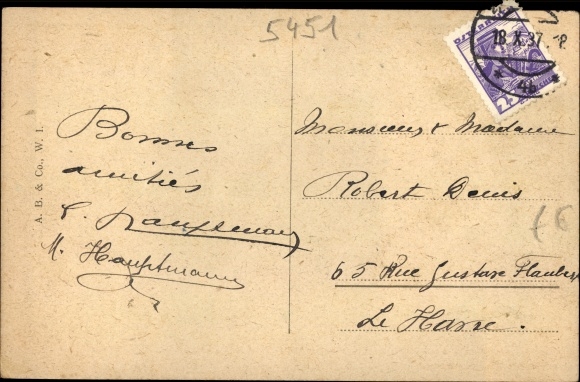 5451
18.X.37
25
A. B. & Co., W. I.
Bonnes
amitiés
M. Hauptmann
Monsieur & Madame
Robert Denis
65 Rue Gustave Flaubert
Le Havre.